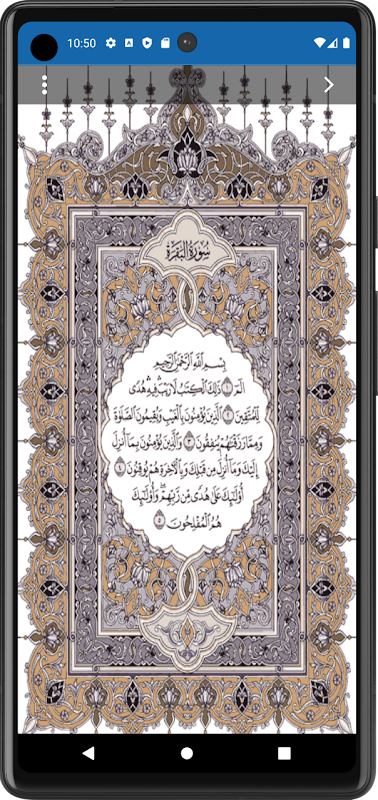 10:50
سُورَةُ البَقَرَةِ
بِسْمِ اللَّهِ الرَّحْمَٰنِ الرَّحِيمِ
الٓمٓ ١ ذَٰلِكَ الْكِتَٰبُ لَا رَيْبَ فِيهِ هُدًى
لِّلْمُتَّقِينَ ٢ الَّذِينَ يُؤْمِنُونَ بِالْغَيْبِ وَيُقِيمُونَ الصَّلَوٰةَ
وَمِمَّا رَزَقْنَٰهُمْ يُنفِقُونَ ٣ وَالَّذِينَ يُؤْمِنُونَ بِمَا أُنزِلَ
إِلَيْكَ وَمَا أُنزِلَ مِن قَبْلِكَ وَبِالْآخِرَةِ هُمْ يُوقِنُونَ ٤
أُولَٰئِكَ عَلَىٰ هُدًى مِّن رَّبِّهِمْ وَأُولَٰئِكَ
هُمُ الْمُفْلِحُونَ ٥